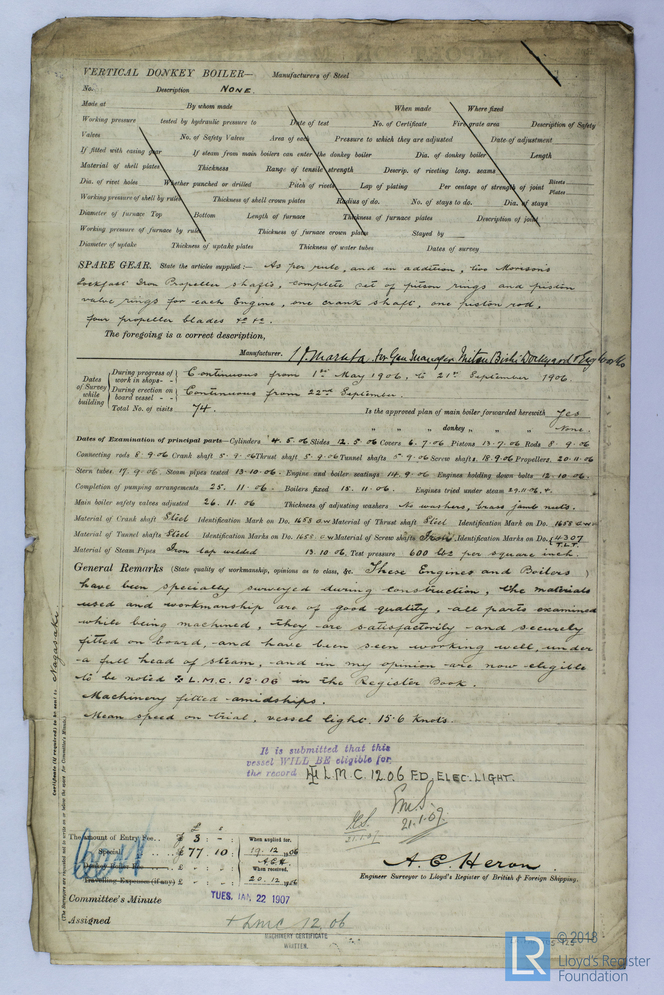 VERTICAL DONKEY BOILER— Manufacturers of Steel
No. Description NONE.
Made at By whom made When made Where fixed
Working pressure tested by hydraulic pressure to Date of test No. of Certificate Fire grate area Description of Safety
Valves No. of Safety Valves Area of each Pressure to which they are adjusted Date of adjustment
If fitted with casing gear If steam from main boilers can enter the donkey boiler Dia. of donkey boiler Length
Material of shell plates Thickness Range of tensile strength Descrip. of riveting long. seams
Dia. of rivet holes Whether punched or drilled Pitch of rivets Lap of plating Per centage of strength of joint Rivets Plates
Working pressure of shell by rules Thickness of shell crown plates Radius of do. No. of stays to do. Dia. of stays
Diameter of furnace Top Bottom Length of furnace Thickness of furnace plates Description of joint
Working pressure of furnace by rules Thickness of furnace crown plates Stayed by
Diameter of uptake Thickness of uptake plates Thickness of water tubes Dates of survey
SPARE GEAR. State the articles supplied:— As per rule, and in addition, two
Iron Propeller shafts, complete set of piston rings and piston
valve rings for each Engine, one crank shaft, one piston rod,
four propeller blades &c &c.
The foregoing is a correct description,
Manufacturer. for Gen Manager Mitsu Bishi Dockyard & Eng. Works
Dates of Survey while building
During progress of work in shops - - Continuous from 1st May 1906, to 21st September 1906.
During erection on board vessel - - Continuous from 22nd September.
Total No. of visits 74. Is the approved plan of main boiler forwarded herewith Yes
" " " donkey " " " None.
Dates of Examination of principal parts—Cylinders 4.5.06 Slides 12.5.06 Covers 6.7.06 Pistons 13.7.06 Rods 8.9.06
Connecting rods 8.9.06 Crank shaft 5.9.06 Thrust shaft 5.9.06 Tunnel shafts 5.9.06 Screw shafts 18.9.06 Propellers 20.11.06
Stern tubes 17.9.06 Steam pipes tested 13.10.06 Engine and boiler seatings 14.9.06 Engines holding down bolts 12.10.06
Completion of pumping arrangements 25.11.06 Boilers fixed 15.11.06 Engines tried under steam 29.11.06
Main boiler safety valves adjusted 26.11.06 Thickness of adjusting washers No washers, brass jamb nuts.
Material of Crank shaft Steel Identification Mark on Do. 1655 Material of Thrust shaft Steel Identification Mark on Do. 1655
Material of Tunnel shafts Steel Identification Marks on Do. 1655 Material of Screw shafts Iron Identification Marks on Do. 4307
Material of Steam Pipes Iron lap welded 13.10.06 Test pressure 600 lbs per square inch.
General Remarks (State quality of workmanship, opinions as to class, &c. These Engines and Boilers
have been specially surveyed during construction, the materials
used and workmanship are of good quality, all parts examined
while being machined, they are satisfactorily and securely
fitted on board, and have been seen working well, under
a full head of steam, and in my opinion are now eligible
to be noted ✠ L.M.C. 12.06 in the Register Book.
Machinery fitted amidships.
Mean speed on trial, vessel light. 15.6 knots.
Certificate (if required) to be sent to Nagasaki
(The Surveyors are requested not to write on or below the space for Committee's Minute.)
It is submitted that this
vessel WILL BE eligible for
the record ✠ L.M.C. 12.06 FD. ELEC. LIGHT.
21.1.07
21.1.07
The amount of Entry Fee.. £ 3 : - When applied for,
Special £ 77 : 10 : 19.12.1906
Donkey Boiler Fee £ When received,
Travelling Expenses (if any) £ 20.12.1906
A. C. Heron.
Engineer Surveyor to Lloyd's Register of British & Foreign Shipping.
Committee's Minute TUES. JAN. 22 1907
Assigned + LMC 12.06
MACHINERY CERTIFICATE
WRITTEN.
LR
© 2018
Lloyd's Register
Foundation